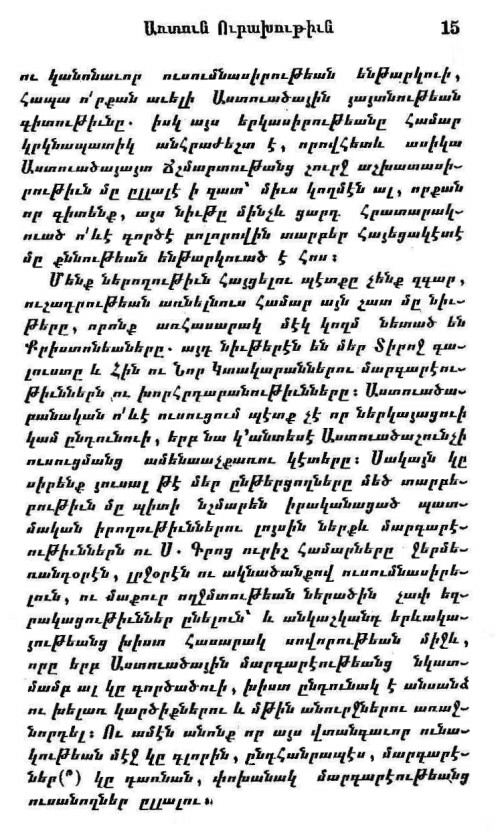 Առտուն Ուրախութիւն 15
ու կանոնաւոր ուսումնասիրութեան ենթարկուի,
հապա ո՛րքան աւելի Աստուածային յայտնութեան
գիտութիւնը. իսկ այս երկասիրութեանը համար
կրկնապատիկ անհրաժեշտ է, որովհետև ասիկա
Աստուածայայտ ճշմարտութանց շուրջ աշխատասի-
րութիւն մը ըլլալէ ի զատ՝ միւս կողմէն ալ, որքան
որ գիտենք, այս նիւթը մինչև ցարդ հրատարակ-
ուած ո՛ևէ գործէ բոլորովին տարբեր հայեցակէտէ
մը քննութեան ենթարկուած է հոս:
Մենք ներողութիւն հայցելու պէտքը չենք զգար,
ուշադրութեան առնելնուս համար այն շատ մը նիւ-
թերը, որոնք առհասարակ մէկ կողմ նետած են
Քրիստոնեաները. այդ նիւթերէն են մեր Տիրոջ գա-
լուստը և Հին ու Նոր Կտակարաններու մարգարէու-
թիւններն ու խորհրդարանութիւնները: Աստուածա-
բանական ո՛ևէ ուսուցում պէտք չէ որ ներկայացուի
կամ ընդունուի, երբ նա կ՚անտեսէ Աստուածաշունչի
ուսուցմանց ամենաաչքառու կէտերը: Սակայն կը
սիրենք յուսալ թէ մեր ընթերցողները մեծ տարբե-
րութիւն մը պիտի նշմարեն իրականացած պատ-
մական իրողութիւններու լոյսին ներքև մարգարէ-
ութիւններն ու Ս. Գրոց ուրիշ համարները ջերմե-
ռանդօրէն, լրջօրէն ու ակնածանքով ուսումնասիրե-
լուն, ու մաքուր ողջմտութեան ներածին չափ եզ-
րակացութիւններ ընելուն՝ և անկաշկանդ երևակա-
յութեանց խիստ հասարակ սովորութեան միջև,
որը երբ Աստուածային մարգարէութեանց նկատ-
մամբ ալ կը գործածուի, խիստ ընդունակ է անսանձ
ու խելառ կարծիքներու և մթին անուրջներու առաջ-
նորդել: Ու ամէն անոնք որ այս վտանգաւոր ունա-
կութեան մէջ կը գլորին, ընդհանրապէս, մարգարէ-
ներ(՞) կը դառնան, փոխանակ մարգարէութեանց
ուսանողներ ըլլալու: